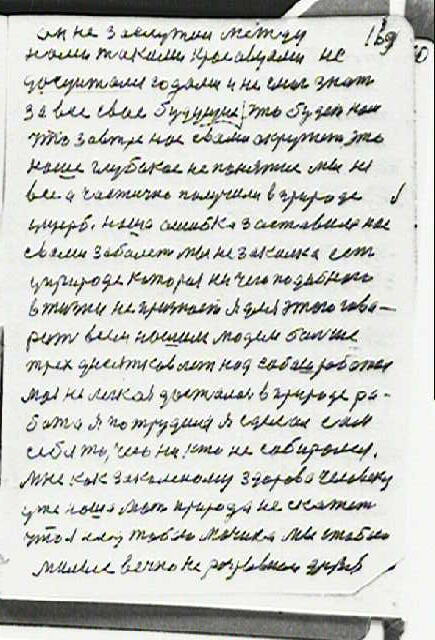 он не заслужил между 169
нами такими красавцами не
досчитали годами и не смог знать
за все свое будущие, это будет нам
что завтре нас свами окружит, это
наше глубокое не понятие мы не
все а частично получили в природе
ущерб. наша ошибка заставила нас
свами заболеть мы не закалка есть
уприроде которая ни чего подобного
в жизни не признает я для этого гова-
рю всем нашим людем больше
трех десятков лет над собаю работал
моя не легкая досталась в природе ра-
бота я потрудился я сделал сам
себя то, чего ни кто не собирался.
мне как закаленому здорово человеку
уже наша мать природа не скажет
что я мы стобою
милые вечно не